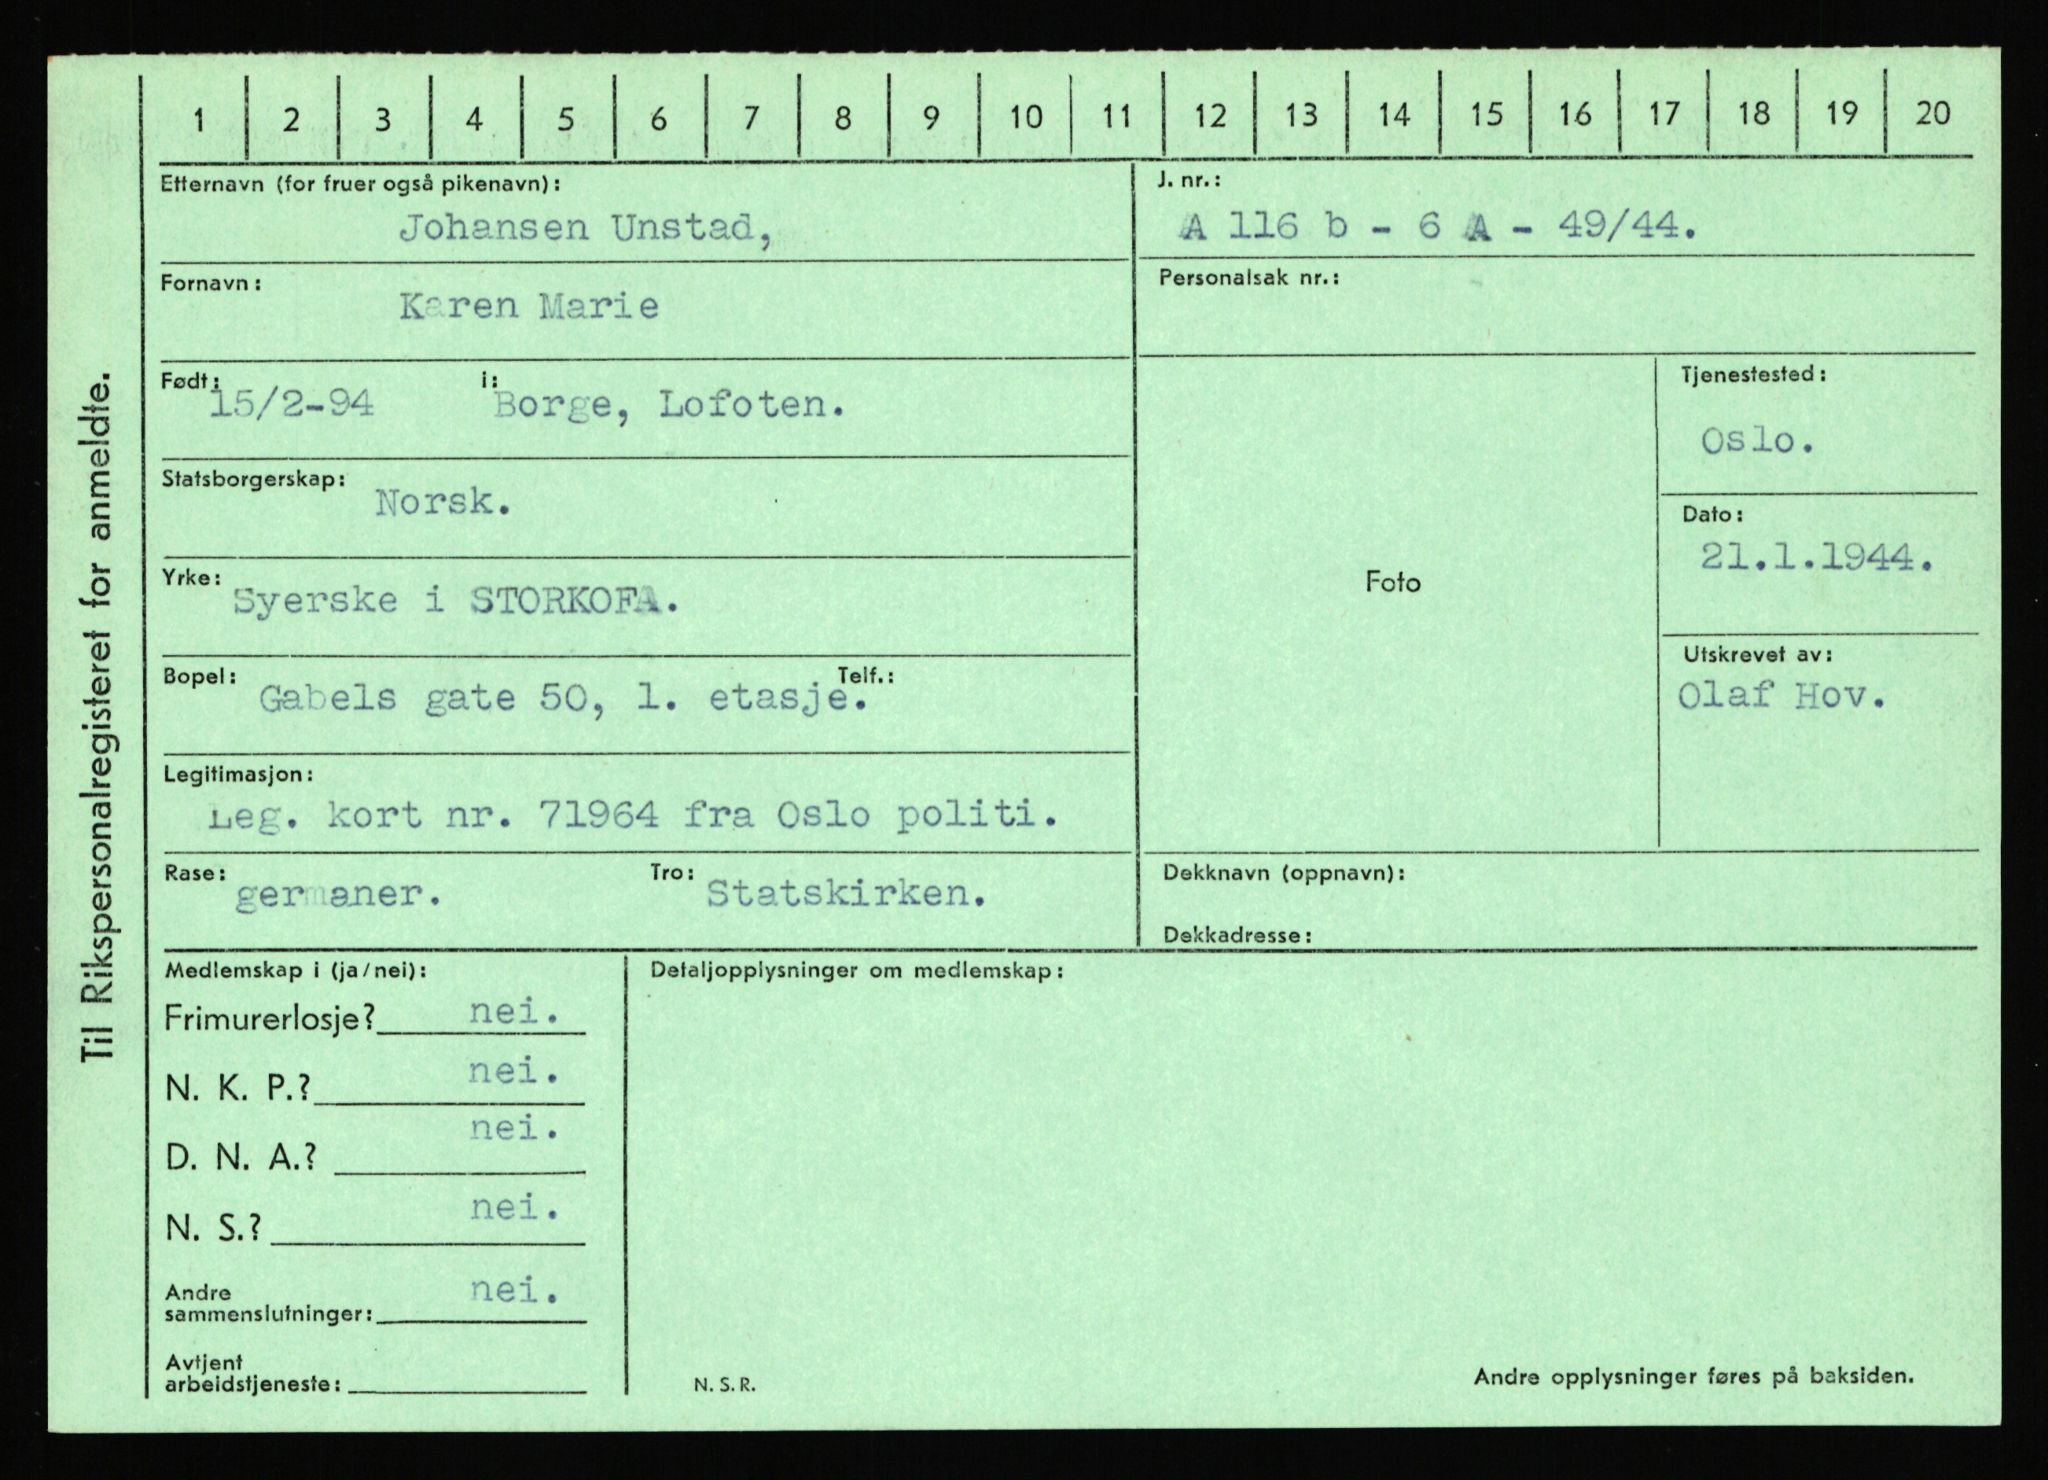 1 2 3 4 5 6 7 8 9 10 11 12 13 14 15 16 17 18 19 20
Til Rikspersonalregisteret for anmeldte.
Etternavn (for fruer også pikenavn):
Johansen Unstad,
Fornavn:
Karen Marie
Født: 15/2-94 i: Borge, Lofoten.
Statsborgerskap:
Norsk.
Yrke:
Syerske i STORKOFA.
Bopel: Telf.:
Gabels gate 50, 1. etasje.
Legitimasjon:
Leg. kort nr. 71964 fra Oslo politi.
Rase: Tro:
germaner. Statskirken.
J. nr.:
A 116 b - 6 A - 49/44.
Personalsak nr.:
Foto
Tjenestested:
Oslo.
Dato:
21.1.1944.
Utskrevet av:
Olaf Hov.
Dekknavn (oppnavn):
Dekkadresse:
Medlemskap i (ja/nei):
Frimurerlosje? nei.
N. K. P.? nei.
D. N. A.? nei.
N. S.? nei.
Andre
sammenslutninger: nei.
Avtjent
arbeidstjeneste:
Detaljopplysninger om medlemskap:
N. S. R.
Andre opplysninger føres på baksiden.